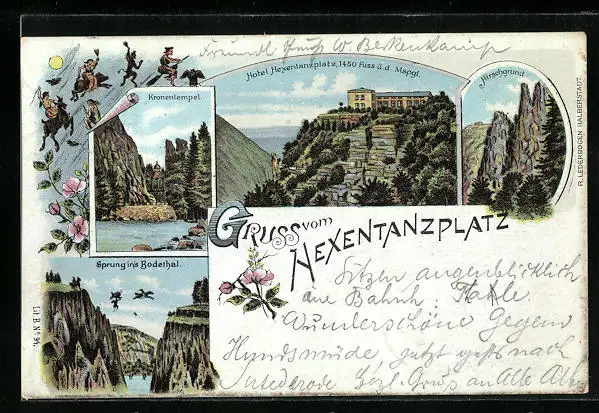 Freundl. Gruss W. Berkenkamp
Hotel Hexentanzplatz, 1450 Fuss ü. d. Mspgl.
Hirschgrund
Kronentempel.
R. LEDERBOGEN HALBERSTADT.
GRUSS vom
HEXENTANZPLATZ
Sprung in's Bodethal.
Lit. B. No. 94.
Sitzen augenblicklich
am Bahnh. Thale.
Wunderschöne Gegend
Hundsmüde jetzt geht's nach
Gruss an Alle